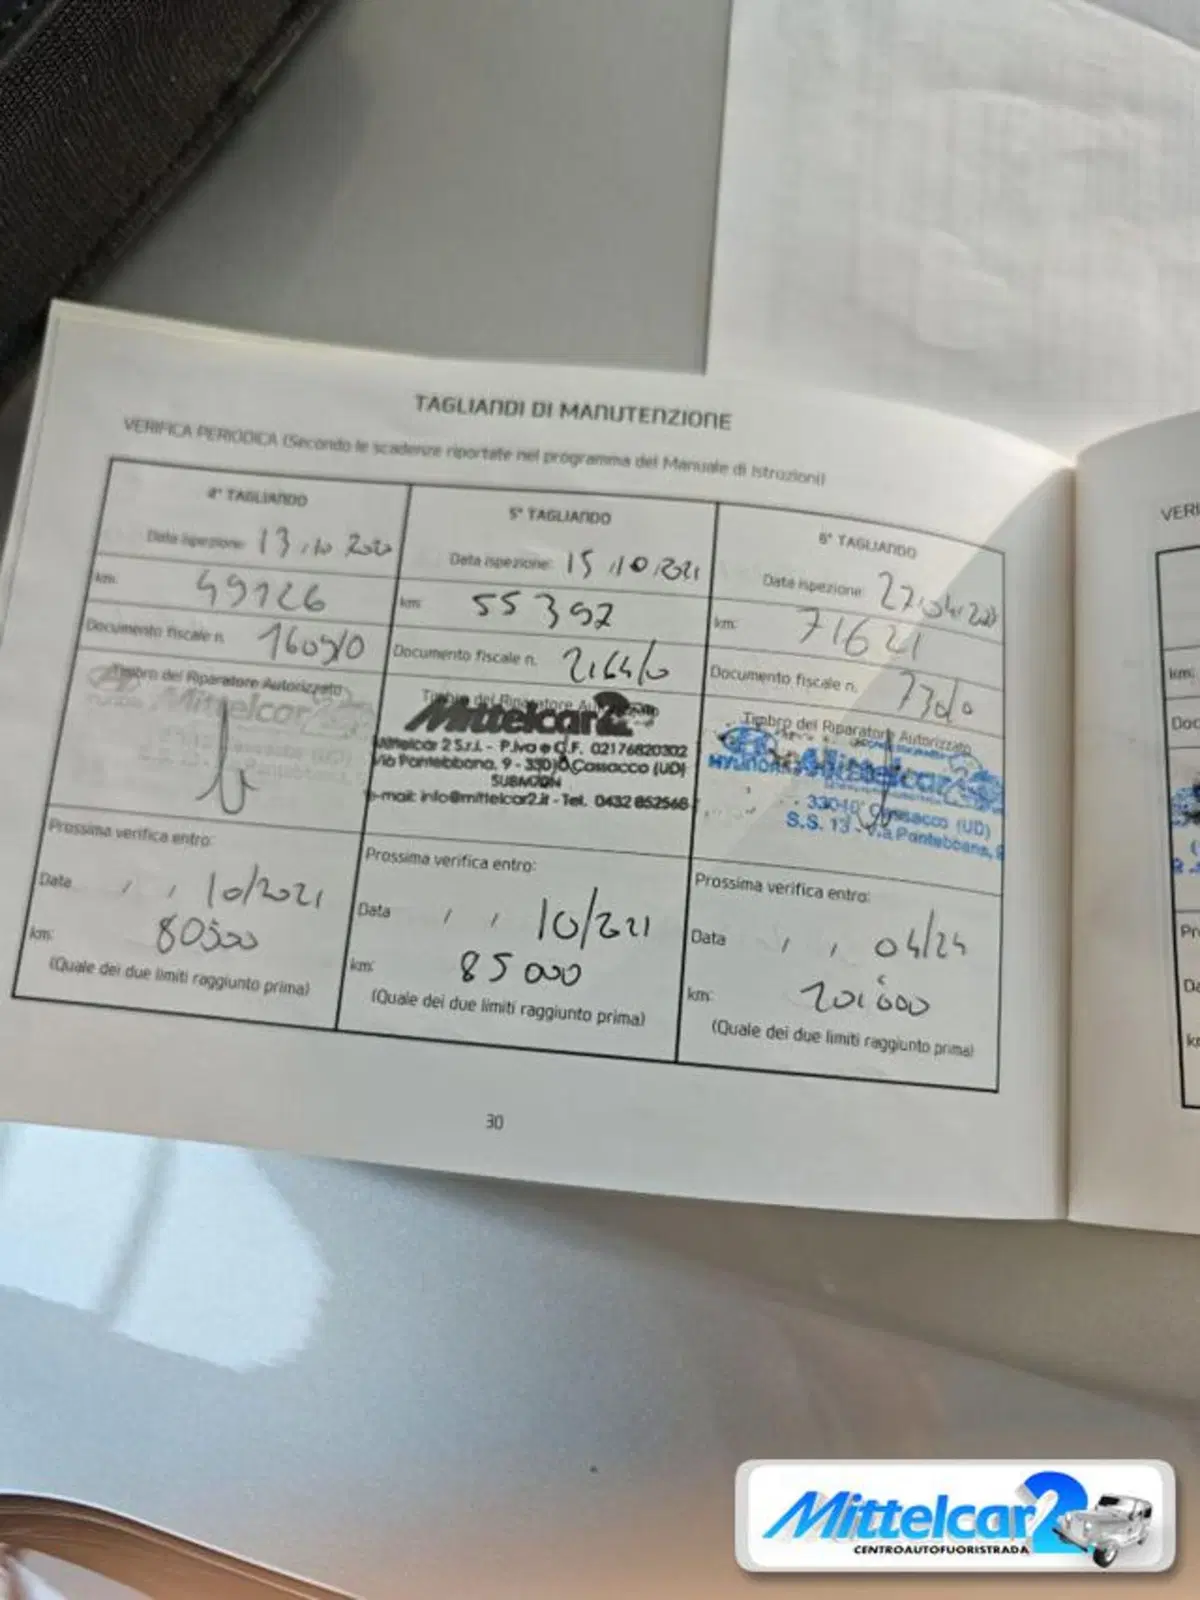 TAGLIANDI DI MANUTENZIONE
VERIFICA PERIODICA (Secondo le scadenze riportate nel programma del Manuale di Istruzioni)
4° TAGLIANDO
Data ispezione: 13.10.2020
km: 49126
Documento fiscale n. 1609/0
Timbro del Riparatore Autorizzato
Mittelcar
Prossima verifica entro:
Data , , 10/2021
km: 80500
(Quale dei due limiti raggiunto prima)
5° TAGLIANDO
Data ispezione: 15.10.2021
km: 55392
Documento fiscale n. 2164/0
Timbro del Riparatore
Mittelcar2
Mittelcar 2 S.r.l. - P.Iva e C.F. 02176820302
Via Pantebbana, 9 - 33010 Cassacco (UD)
SUBM70N
e-mail: info@mittelcar2.it - Tel. 0432 852568
Prossima verifica entro:
Data , , 10/2021
km: 85000
(Quale dei due limiti raggiunto prima)
6° TAGLIANDO
Data ispezione: 27.04.
km: 71621
Documento fiscale n.
Timbro del Riparatore Autorizzato
HYUNDAI Mittelcar2
33010 Cassacco (UD)
S.S. 13 - Via Pantebbana, 9
Prossima verifica entro:
Data , , 04/24
km: 101000
(Quale dei due limiti raggiunto prima)
30
VERI
km:
Doc
Pr
Da
Mittelcar2
CENTROAUTOFUORISTRADA